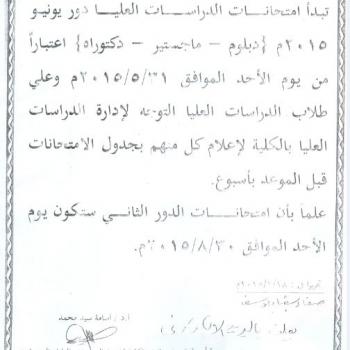 تبدأ امتحانات الدراسات العليا دور يونيو
٢٠١٥م {دبلوم - ماجستير - دكتوراه} اعتباراً
من يوم الأحد الموافق ٢٠١٥/٥/٣١م وعلي
طلاب الدراسات العليا التوجه لإدارة الدراسات
العليا بالكلية لإعلام كل منهم بجدول الامتحانات
قبل الموعد بأسبوع.
علماً بأن امتحانات الدور الثاني ستكون يوم
الأحد الموافق ٢٠١٥/٨/٣٠م.
أ.د/ أسامة سيد محمد